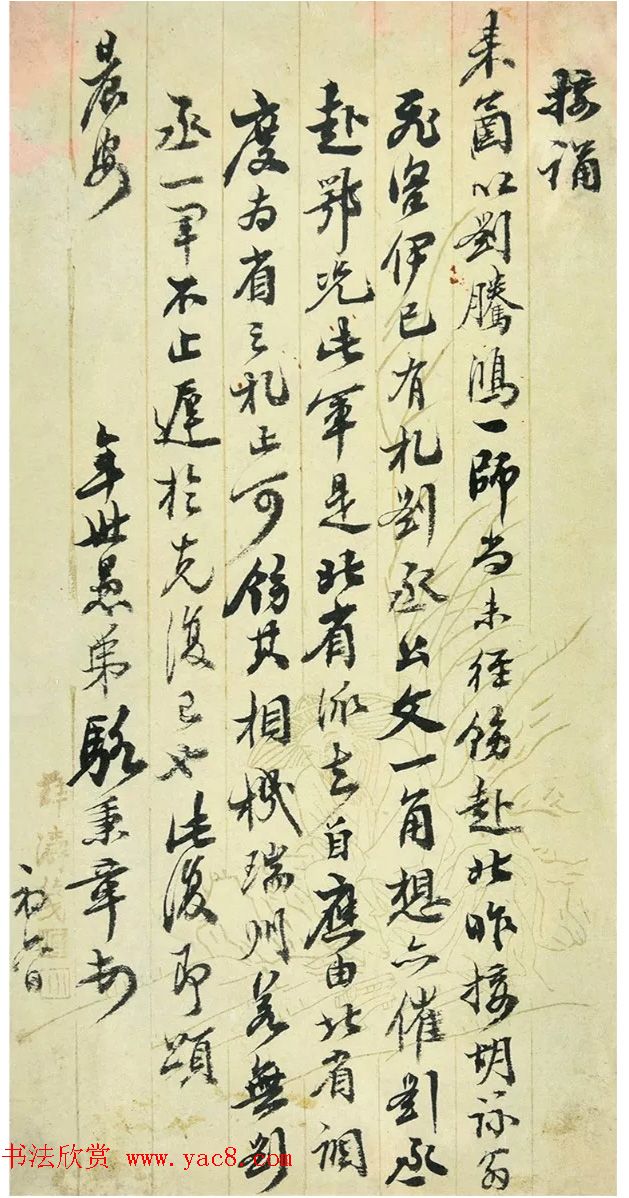 接誦
来函以劉騰鴻一師尚未徑飭赴北昨接胡詠翁
飛咨伊已有札劉丞公文一角想亦催劉丞
赴鄂况此軍是北省派去自應由北省調
度南省之札止可飭其相機瑞州若無劉
丞一軍不止遲於克復已也此復即頌
晨安
年世愚弟駱秉章
书法欣赏 www.yac8.com